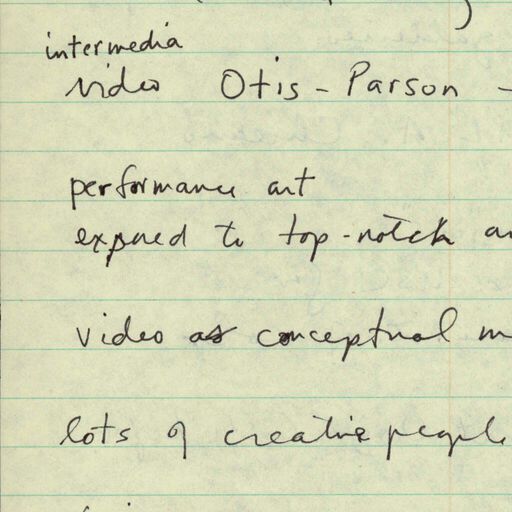 intermedia
video Otis - Parson -
performance art
exposed to top-notch
video as conceptual
lots of creative people